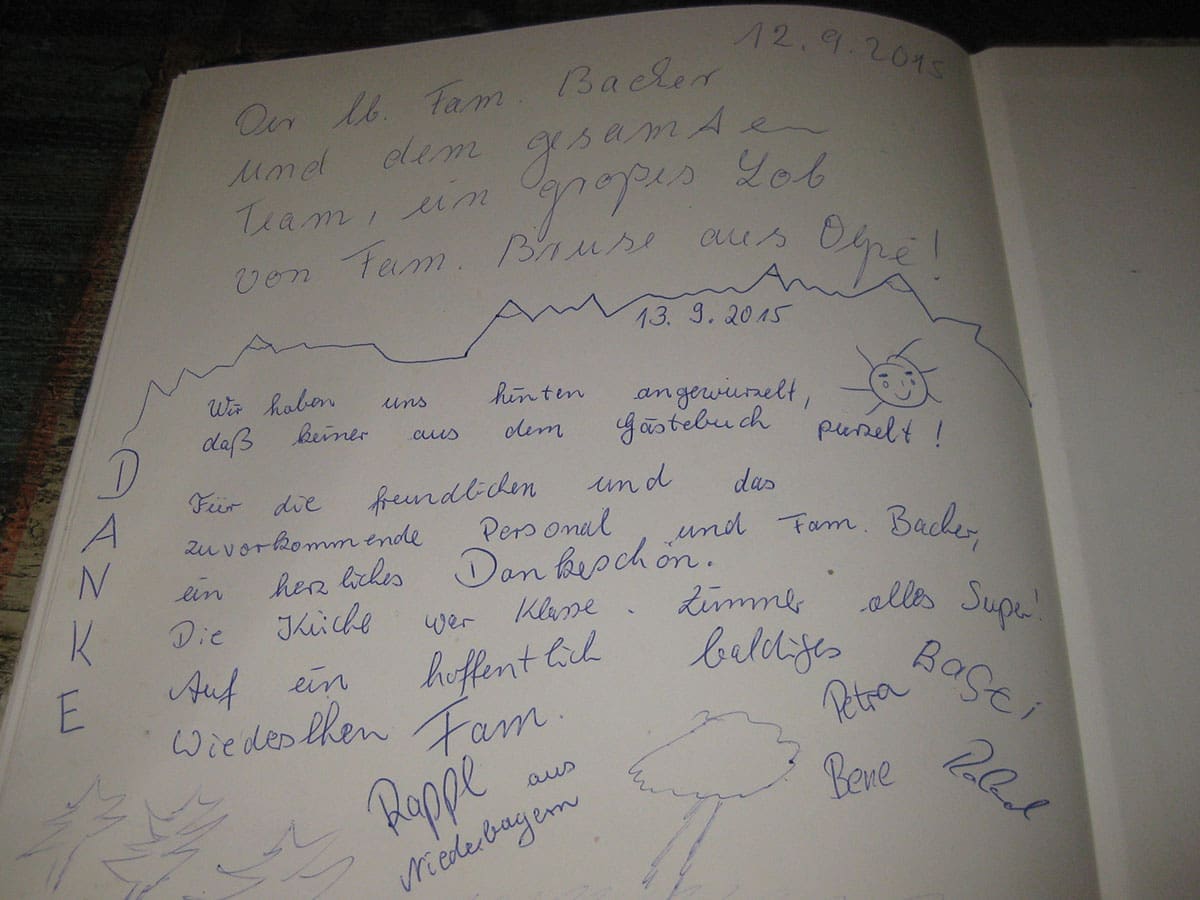 12.9.2015
Der lb. Fam. Bacher
und dem gesamten
Team, ein großes Lob
von Fam. Bruse aus Olpe!
13.9.2015
Wir haben uns hinten angewurzelt,
daß keiner aus dem Gästebuch purzelt!
DANKE
Für die freundlichen und das
zuvorkommende Personal und Fam. Bacher,
ein herzliches Dankeschön.
Die Küche war Klasse. Zimmer alles Super!
Auf ein hoffentlich baldiges
Wiedesehen Fam.
Rappl aus
Niederbayern
Petra
Bene
Roland